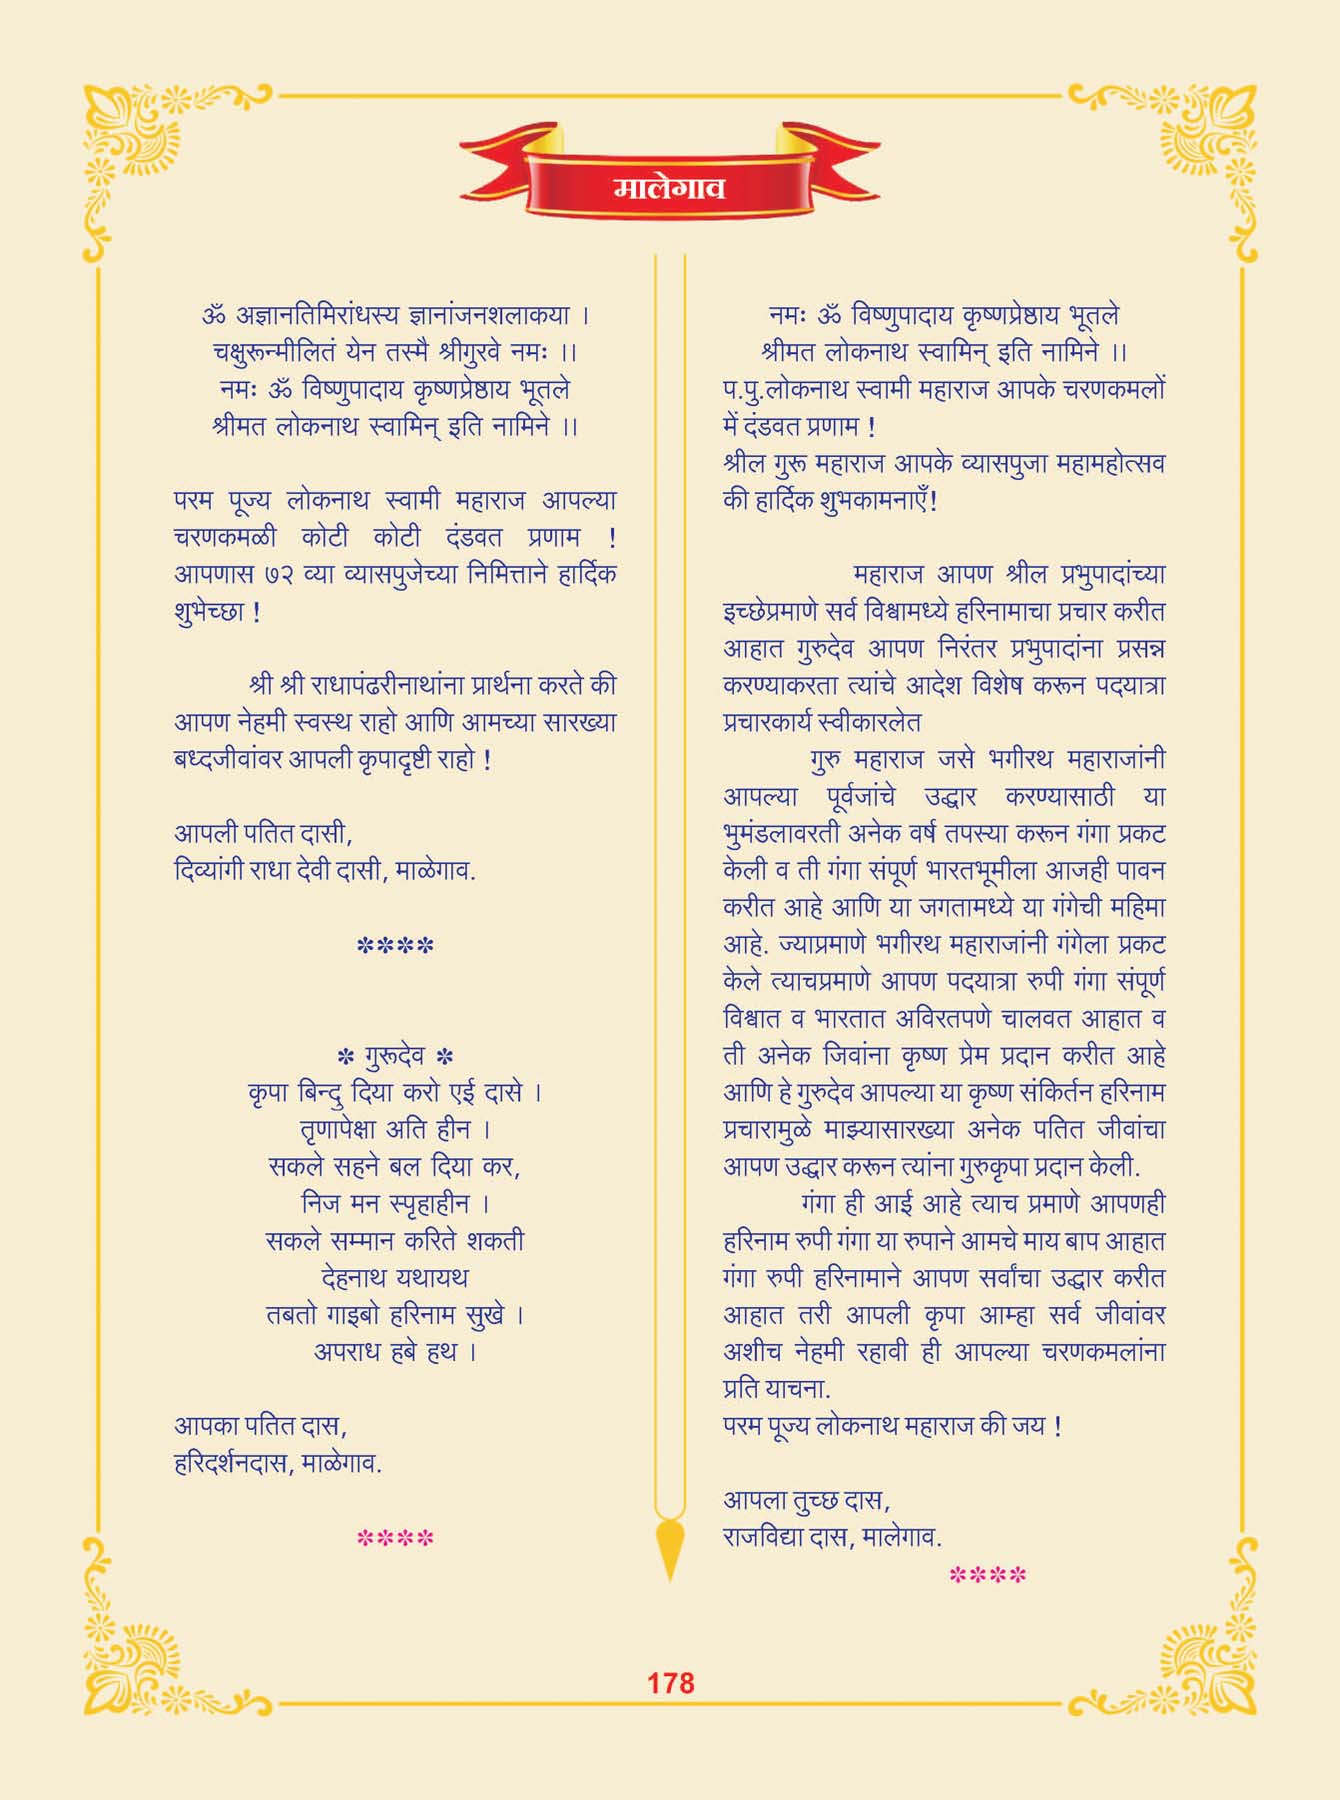 मालेगाव
ॐ अज्ञानतिमिरांधस्य ज्ञानांजनशलाकया ।
चक्षुरून्मीलितं येन तस्मै श्रीगुरवे नमः ।।
नमः ॐ विष्णुपादाय कृष्णप्रेष्ठाय भूतले
श्रीमत लोकनाथ स्वामिन् इति नामिने ।।
परम पूज्य लोकनाथ स्वामी महाराज आपल्या
चरणकमळी कोटी कोटी दंडवत प्रणाम !
आपणास ७२ व्या व्यासपुजेच्या निमित्ताने हार्दिक
शुभेच्छा !
श्री श्री राधापंढरीनाथांना प्रार्थना करते की
आपण नेहमी स्वस्थ राहो आणि आमच्या सारख्या
बध्दजीवांवर आपली कृपादृष्टी राहो !
आपली पतित दासी,
दिव्यांगी राधा देवी दासी, माळेगाव.
****
* गुरूदेव *
कृपा बिन्दु दिया करो एई दासे ।
तृणापेक्षा अति हीन ।
सकले सहने बल दिया कर,
निज मन स्पृहाहीन ।
सकले सम्मान करिते शकती
देहनाथ यथायथ
तबतो गाइबो हरिनाम सुखे ।
अपराध हबे हथ ।
आपका पतित दास,
हरिदर्शनदास, माळेगाव.
****
नमः ॐ विष्णुपादाय कृष्णप्रेष्ठाय भूतले
श्रीमत लोकनाथ स्वामिन् इति नामिने ।।
प.पु.लोकनाथ स्वामी महाराज आपके चरणकमलों
में दंडवत प्रणाम !
श्रील गुरू महाराज आपके व्यासपुजा महामहोत्सव
की हार्दिक शुभकामनाएँ!
महाराज आपण श्रील प्रभुपादांच्या
इच्छेप्रमाणे सर्व विश्वामध्ये हरिनामाचा प्रचार करीत
आहात गुरुदेव आपण निरंतर प्रभुपादांना प्रसन्न
करण्याकरता त्यांचे आदेश विशेष करून पदयात्रा
प्रचारकार्य स्वीकारलेत
गुरु महाराज जसे भगीरथ महाराजांनी
आपल्या पूर्वजांचे उद्धार करण्यासाठी या
भुमंडलावरती अनेक वर्ष तपस्या करून गंगा प्रकट
केली व ती गंगा संपूर्ण भारतभूमीला आजही पावन
करीत आहे आणि या जगतामध्ये या गंगेची महिमा
आहे. ज्याप्रमाणे भगीरथ महाराजांनी गंगेला प्रकट
केले त्याचप्रमाणे आपण पदयात्रा रुपी गंगा संपूर्ण
विश्वात व भारतात अविरतपणे चालवत आहात व
ती अनेक जिवांना कृष्ण प्रेम प्रदान करीत आहे
आणि हे गुरुदेव आपल्या या कृष्ण संकिर्तन हरिनाम
प्रचारामुळे माझ्यासारख्या अनेक पतित जीवांचा
आपण उद्धार करून त्यांना गुरुकृपा प्रदान केली.
गंगा ही आई आहे त्याच प्रमाणे आपणही
हरिनाम रुपी गंगा या रुपाने आमचे माय बाप आहात
गंगा रुपी हरिनामाने आपण सर्वांचा उद्धार करीत
आहात तरी आपली कृपा आम्हा सर्व जीवांवर
अशीच नेहमी रहावी ही आपल्या चरणकमलांना
प्रति याचना.
परम पूज्य लोकनाथ महाराज की जय !
आपला तुच्छ दास,
राजविद्या दास, मालेगाव.
****
178